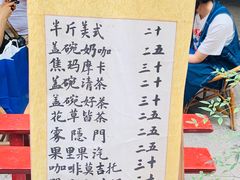 半斤美式 二十
盖碗奶咖 二五
焦玛摩卡 三十
盖碗清茶 二十
盖碗好茶 二五
花草皆茶 二五
家隐門 二五
果里果汽 二五
咖啡莫吉托 三十